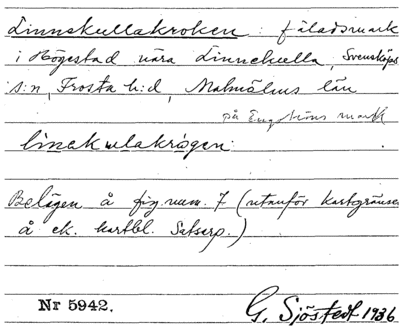 Linnekullakroken: fäladsmark
i Högestad nära Linnekulla, Svensköps
s:n, Frosta h:d, Malmöhus län
på Engströms mark
linakulakrågen:
Belägen å fig. num. 7 (utanför kartgränsen
å ek. kartbl. Satserp.)
Nr 5942.
G. Sjöstedt 1936